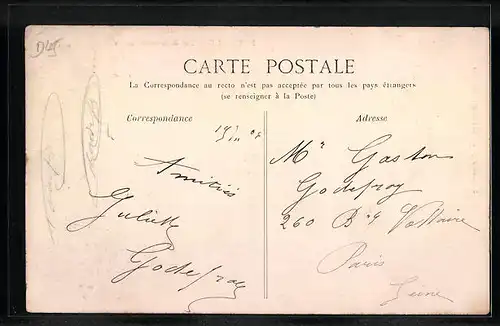 CARTE POSTALE
La Correspondance au recto n'est pas acceptée par tous les pays étrangers
(se renseigner à la Poste)
Correspondance
Amitiés
Juliette
Godefroy
Adresse
Mr Gaston
Godefroy
260 Bd Voltaire
Paris
Seine